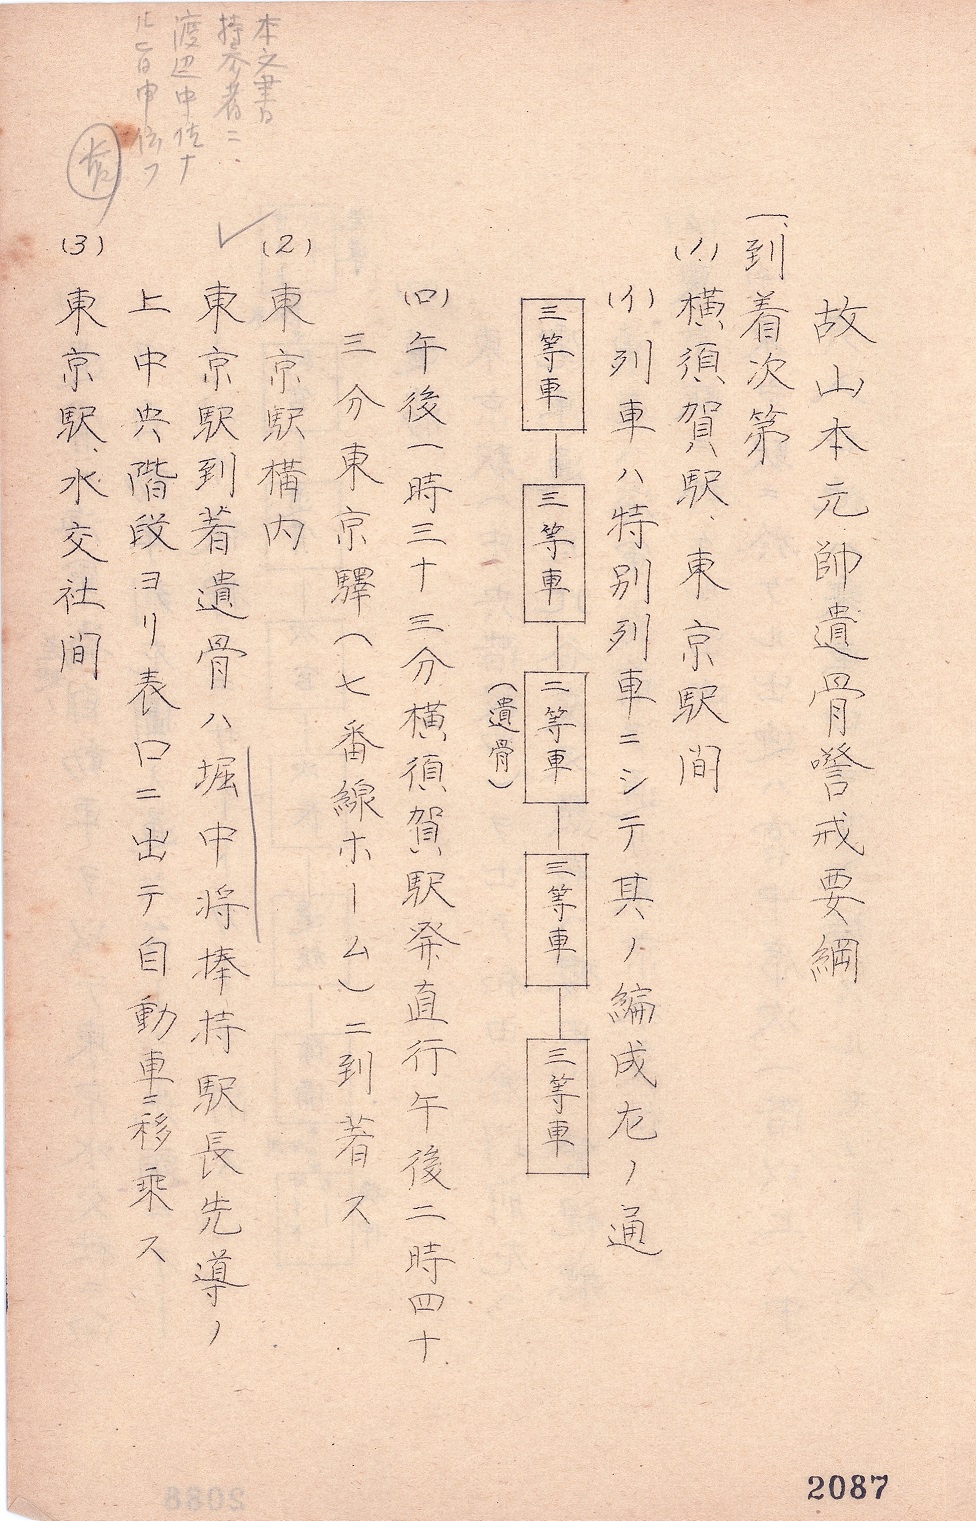 故山本元帥遺骨警戒要綱
一、到着次第
(1)横須賀駅、東京駅間
(イ)列車ハ特別列車ニシテ其ノ編成左ノ通
三等車
三等車
二等車
(遺骨)
三等車
三等車
(ロ)午後一時三十三分横須賀駅発直行午後二時四十
三分東京驛(七番線ホーム)ニ到着ス
(2)東京駅構内
東京駅到着遺骨ハ堀中将捧持駅長先導ノ
上中央階段ヨリ表口ニ出テ自動車ニ移乗ス
(3)東京駅、水交社間
本文書
持参者ニ
渡辺中佐ナ
ル旨申伝フ
2087
2088